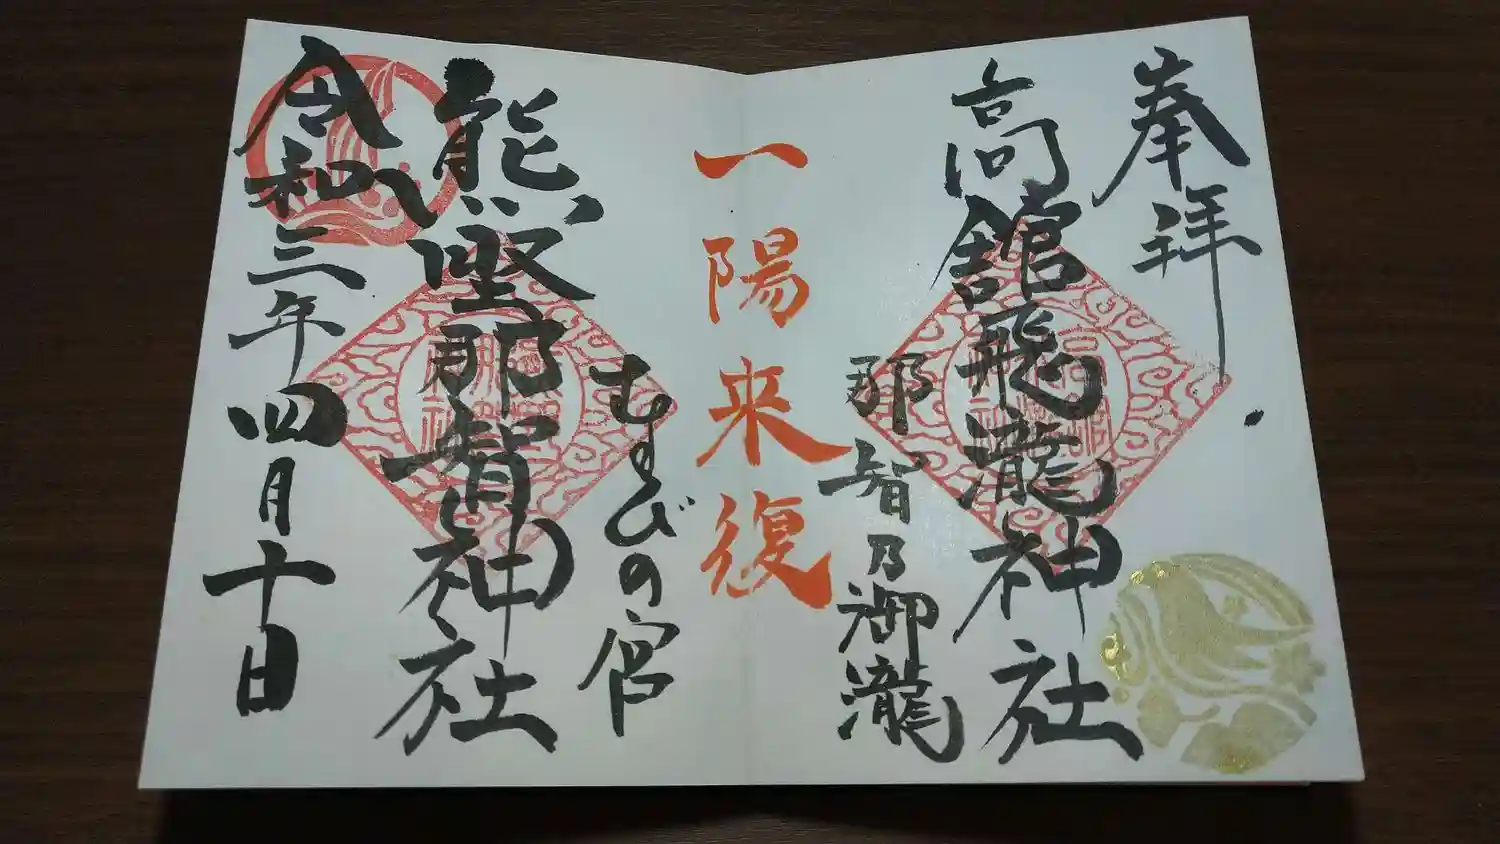 奉拝
高舘飛瀧神社
那智乃御瀧
一陽来復
むすびの宮
熊野那智神社
令和三年四月十日